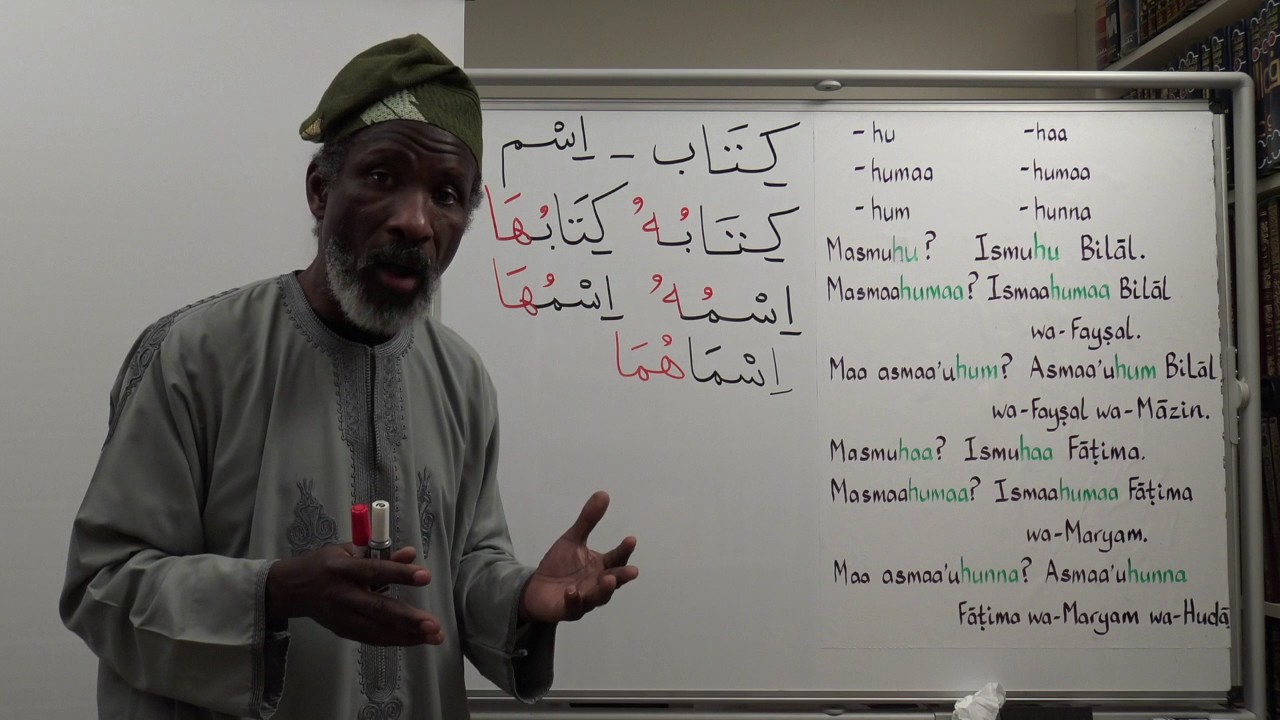 كِتَاب - اِسْم
كِتَابُهُ كِتَابُهَا
اِسْمُهُ اِسْمُهَا
اِسْمَاهُمَا
-hu -haa
-humaa -humaa
-hum -hunna
Masmuhu? Ismuhu Bilāl.
Masmaahumaa? Ismaahumaa Bilāl
wa-Fayṣal.
Maa asmaa'uhum? Asmaa'uhum Bilāl
wa-Fayṣal wa-Māzin.
Masmuhaa? Ismuhaa Fāṭima.
Masmaahumaa? Ismaahumaa Fāṭima
wa-Maryam.
Maa asmaa'uhunna? Asmaa'uhunna
Fāṭima wa-Maryam wa-Hudā